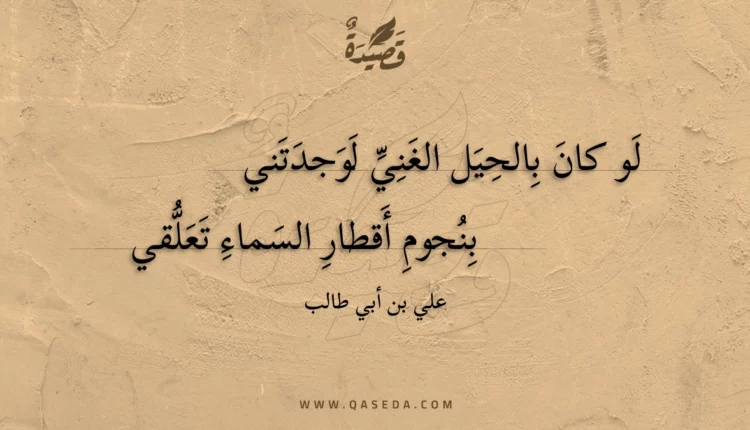 قَصِيدَةٌ
لَو كانَ بِالحِيَل الغَنِيِّ لَوَجدَتَني
بِنُجومِ أَقطارِ السَماءِ تَعَلُّقي
علي بن أبي طالب
WWW.QASEDA.COM